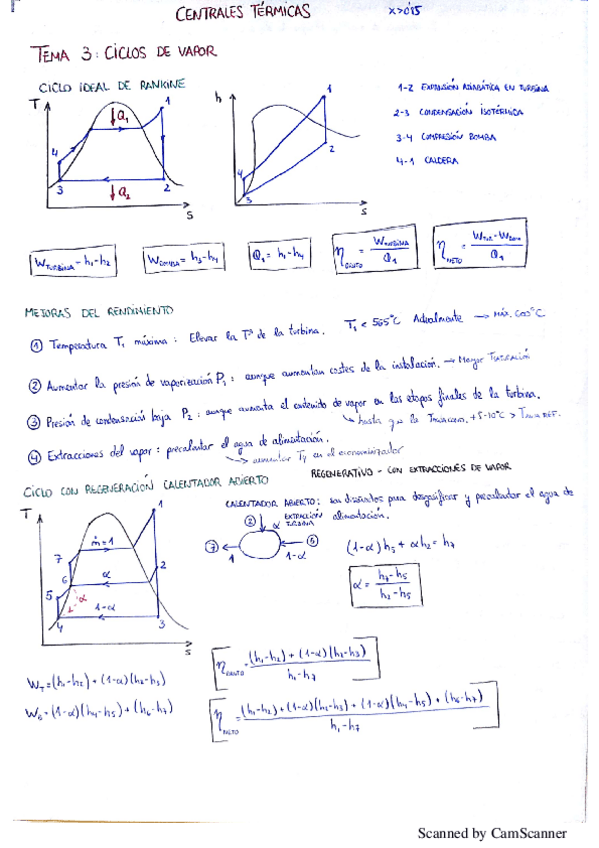 CENTRALES TÉRMICAS
TEMA 3: CICLOS DE VAPOR
CICLO IDEAL DE RANKINE
T
1
Q₁
4
3
Q₂
2
S
h
1
2
4
3
S
1-2 EXPANSIÓN ADIABÁTICA EN TURBINA
2-3 CONDENSACIÓN ISOTÉRMICA
3-4 COMPRESIÓN BOMBA
4-1 CALDERA
W TURBINA = h₁-h₂
W BOMBA = h₃-h₄
Q₁ = h₁-h₄
η BRUTO = W TURBINA / Q₁
η NETO = / Q₁
MEJORAS DEL RENDIMIENTO
① Temperatura T₁ máxima: Elevar la Tª de la turbina. T₁ < 565°C Actualmente → Máx. 600°C
② Aumentar la presión de vaporización P₁: aunque aumentan costes de la instalación. → Mayor
③ Presión de condensación baja P₂: aunque aumenta el contenido de vapor en las etapas finales de la turbina.
↳ hasta que la +5-10°C >
④ Extracciones del vapor: precalentar el agua de alimentación.
→ aumentar en el economizador
CICLO CON REGENERACIÓN CALENTADOR ABIERTO
REGENERATIVO - CON EXTRACCIONES DE VAPOR
T
1
ṁ=1
7
α
2
6
5
α
1-α
4
3
S
CALENTADOR ABIERTO: son diseñados para desgasificar y precalentar el agua de alimentación.
② α EXTRACCIÓN TURBINA
⑦ 1
⑤ 1-α
(1-α)h₅ + αh₂ = h₇
α = (h₇-h₅) / (h₂-h₅)
W_T=(h₁-h₂)+(1-α)(h₂-h₃)
W_B=(1-α)(h₄-h₅)+(h₆-h₇)
η BRUTO = ((h₁-h₂)+(1-α)(h₂-h₃)) / (h₁-h₇)
η NETO = ((h₁-h₂)+(1-α)(h₂-h₃)+(1-α)(h₄-h₅)+(h₆-h₇)) / (h₁-h₇)
Scanned by CamScanner